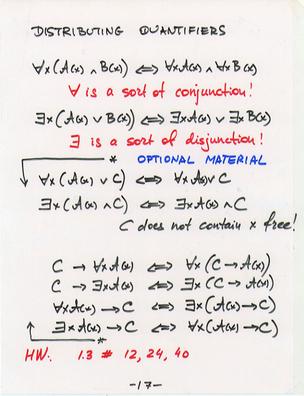 DISTRIBUTING QUANTIFIERS
∀x(A(x) ∧ B(x)) ⟺ ∀xA(x) ∧ ∀xB(x)
∀ is a sort of conjunction!
∃x(A(x) ∨ B(x)) ⟺ ∃xA(x) ∨ ∃xB(x)
∃ is a sort of disjunction!
* OPTIONAL MATERIAL
∀x(A(x) ∨ C) ⟺ ∀xA(x)∨C
∃x(A(x) ∧ C) ⟺ ∃xA(x)∧C
C does not contain x free!
C → ∀xA(x) ⟺ ∀x(C→A(x))
C → ∃xA(x) ⟺ ∃x(C→A(x))
∀xA(x)→C ⟺ ∃x(A(x)→C)
∃xA(x)→C ⟺ ∀x(A(x)→C)
*
HW: 1.3 # 12, 24, 40
-17-